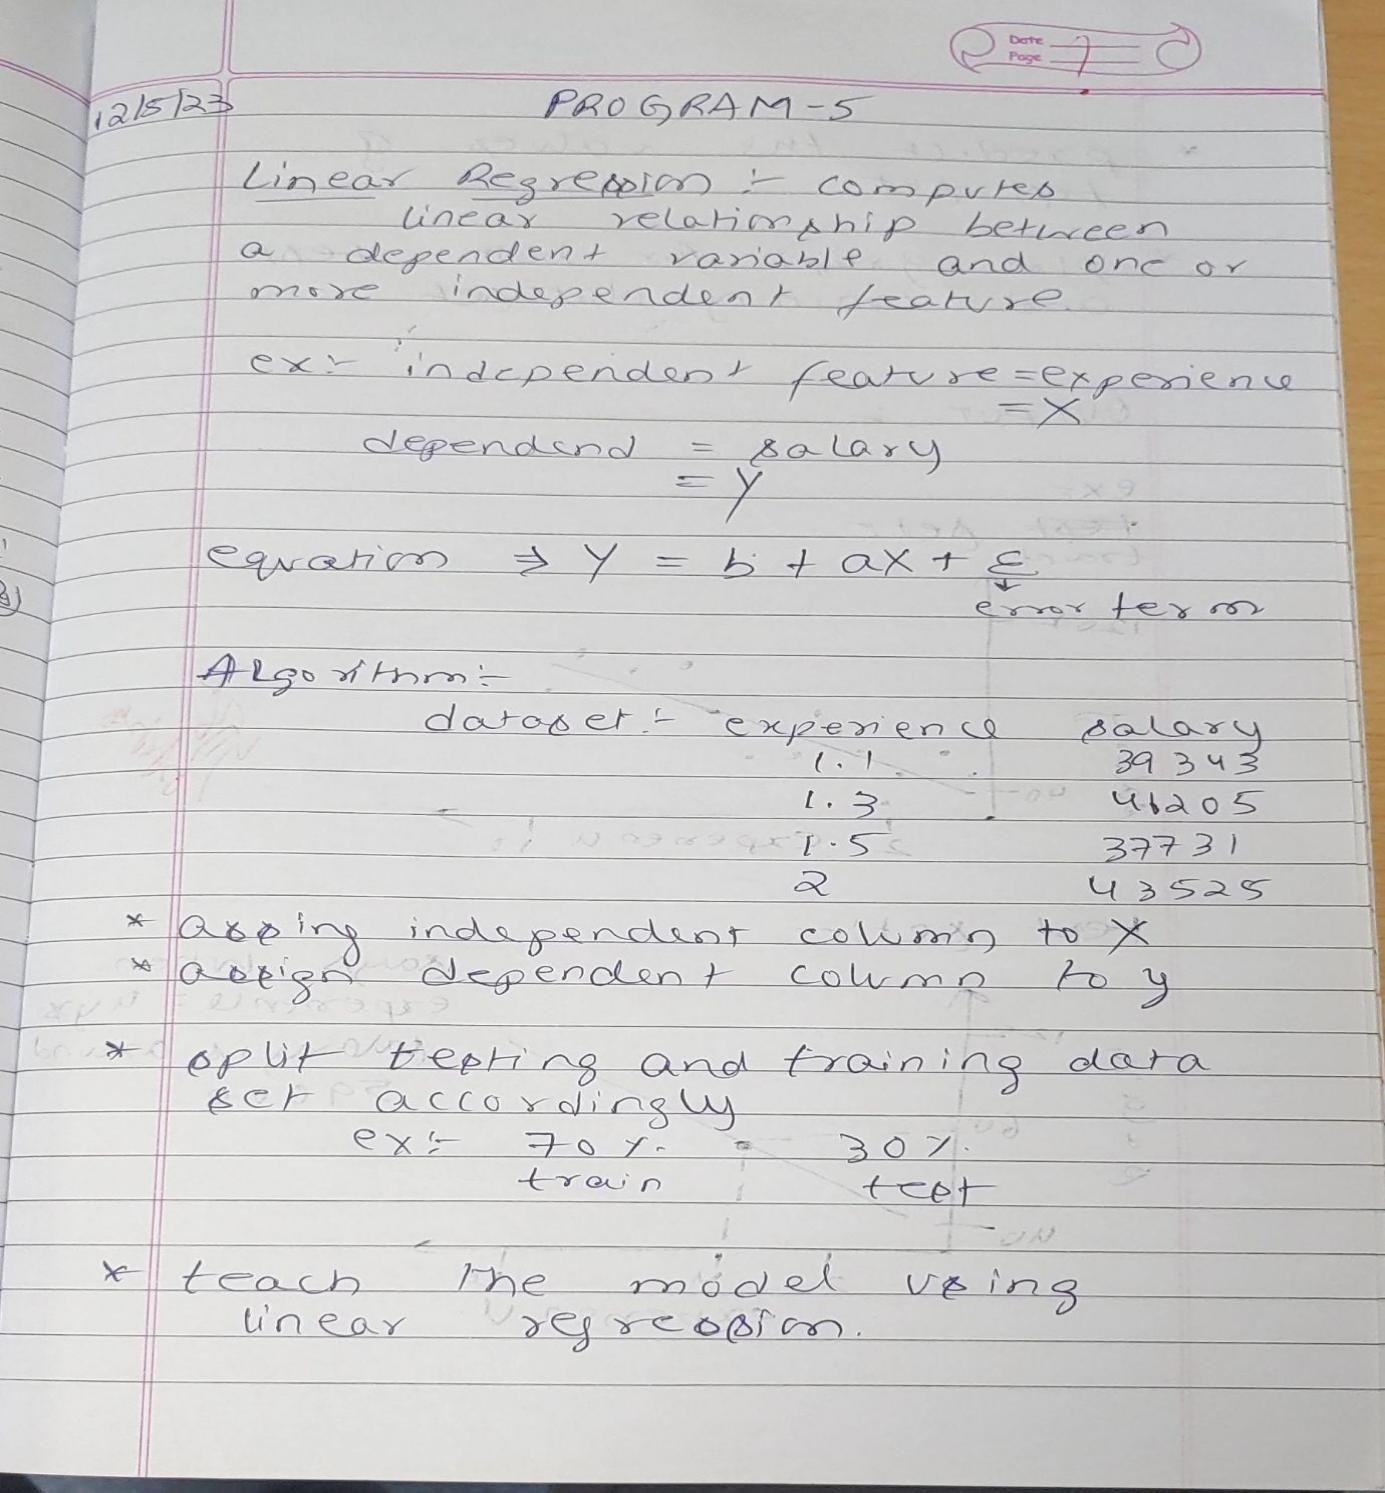 Date
Page 7
12/5/23 PROGRAM-5
Linear Regression :- computes
linear relationship between
a dependent variable and one or
more independent feature
ex:- independent feature = experience
= X
dependend = salary
= Y
equation ⇒ Y = b + aX + ε
error term
Algorithm:-
dataset:- experience salary
1.1 39343
1.3 46205
1.5 37731
2 43525
* assing independent column to X
* assign dependent column to y
* split testing and training data
set accordingly
ex:- 70 %. 30 %.
train test
* teach the model using
linear regression.